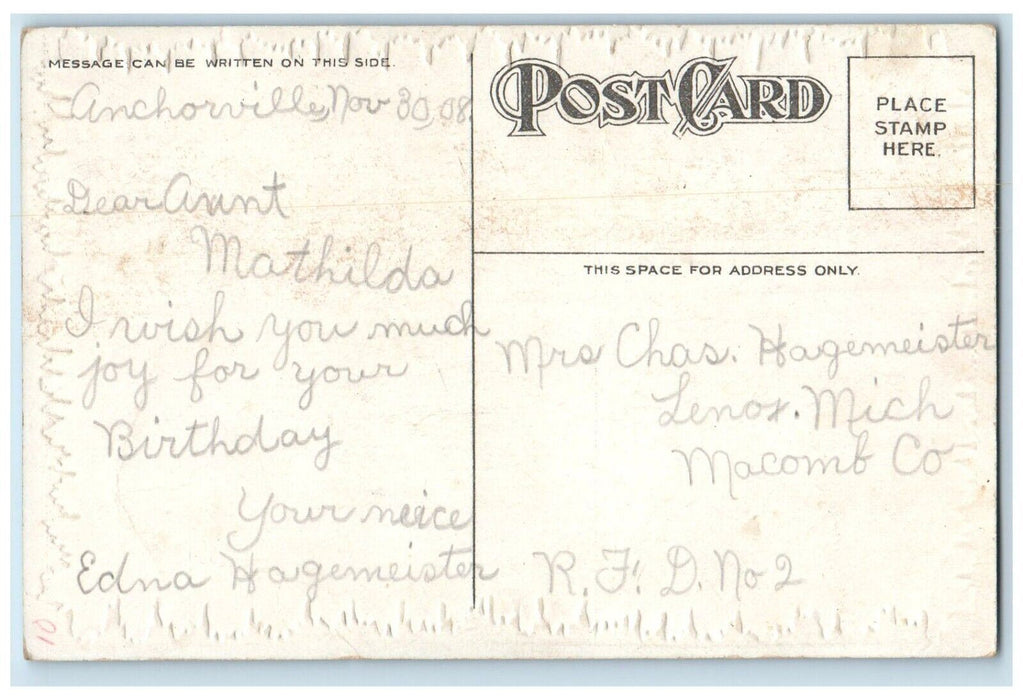 MESSAGE CAN BE WRITTEN ON THIS SIDE.
Anchorville, Nov 30, 08.
Dear Aunt
Mathilda
I wish you much
joy for your
Birthday
Your neice
Edna Hagemeister
POST CARD
PLACE
STAMP
HERE.
THIS SPACE FOR ADDRESS ONLY.
Mrs Chas. Hagemeister
Lenox. Mich
Macomb Co
R. F. D. No 2